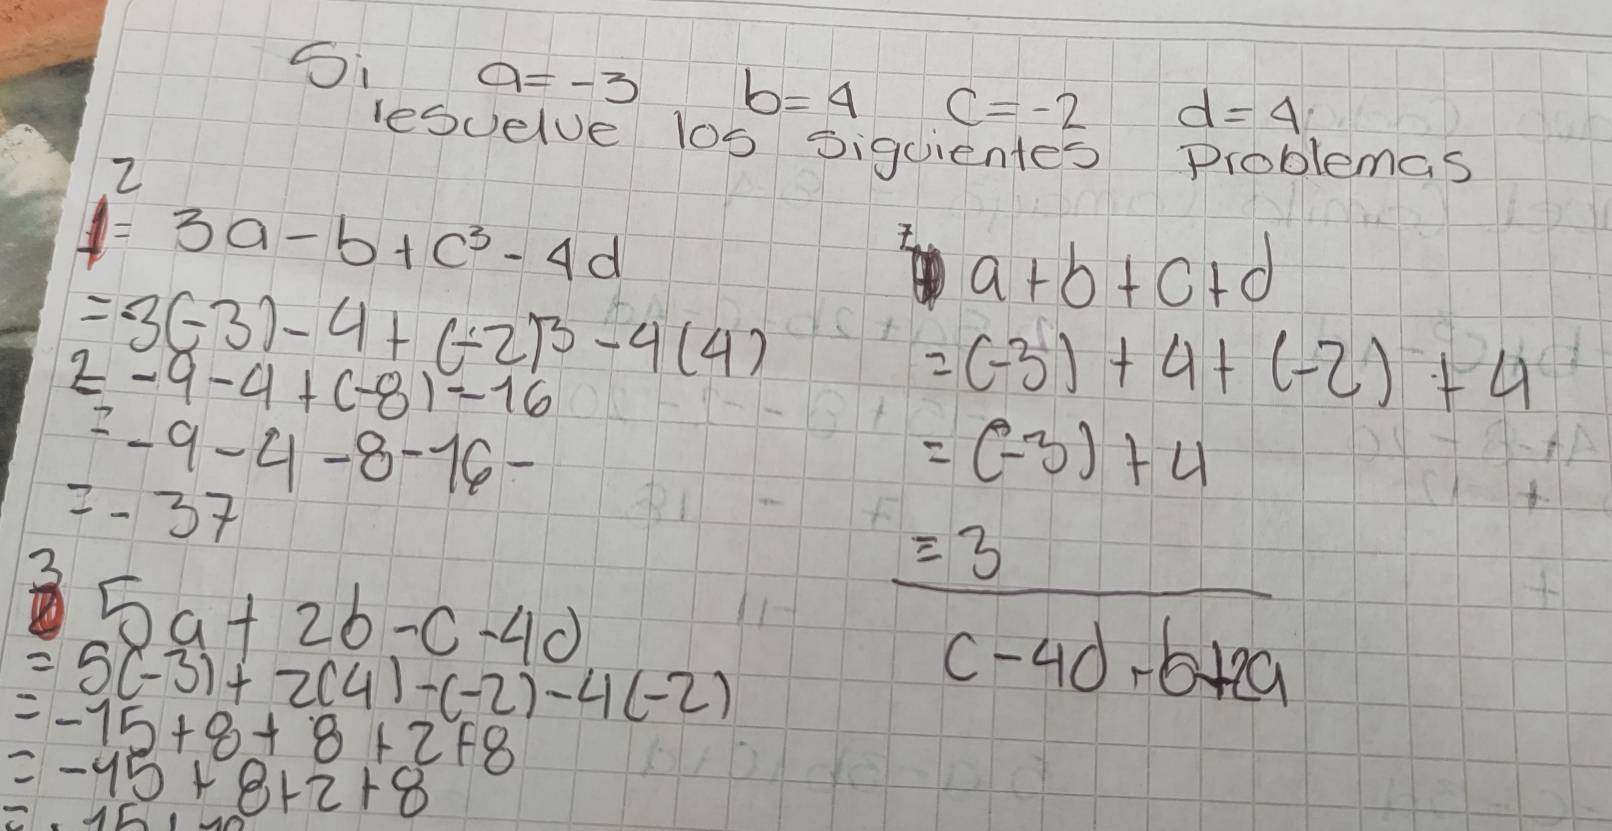 Si a=-3 b=4 c=-2 d=4
resuelve los siguientes problemas
2
1= 3a-b+c³-4d
=3(-3)-4+(-2)3-4(4)
= -9-4+(-8)-16
= -9-4-8-16-
=-37
3
5a+2b-c-4d
=5(-3)+2(4)-(-2)-4(-2)
=-15+8+8+2+8
=-15+8+2+8
a+b+c+d
=(-3)+4+(-2)+4
=(-3)+4
=3
c-4d-b+2a